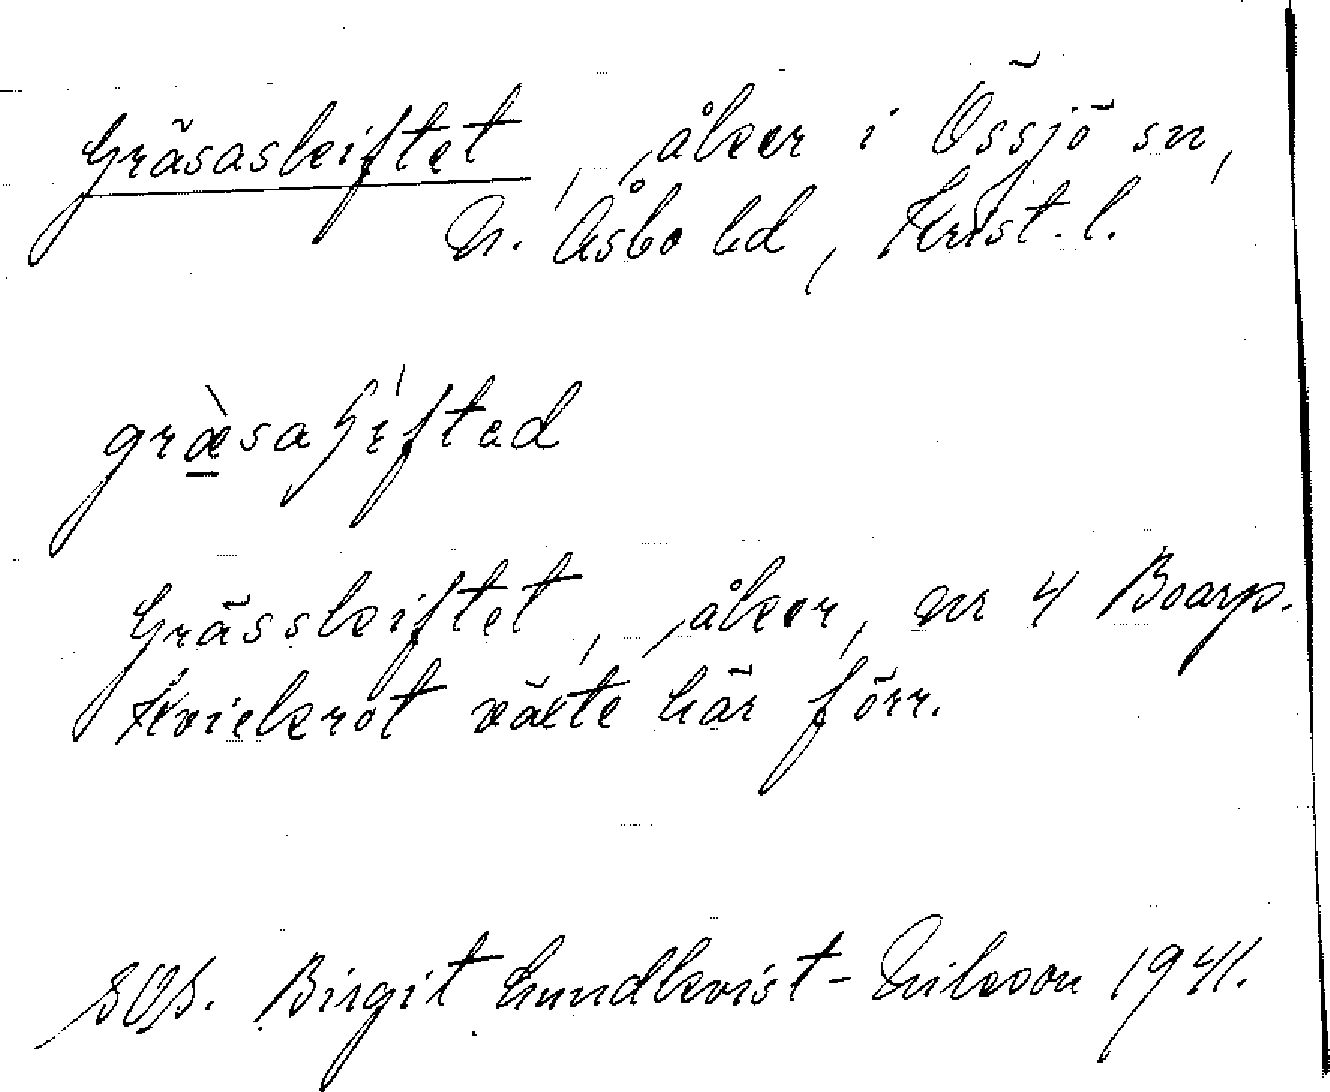 Gräsaskiftet, åker i Össjö sn,
N. Åsbo hd, Krist. l.
græ̀saʃìftad
Grässkiftet, åker, nr 4 Boarp.
Kvickrot växte här förr.
SOS. Birgit Lundkvist-Eriksson 1941.